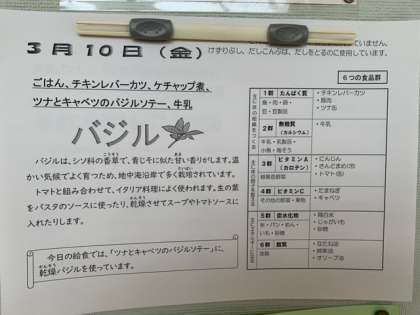 3月10日（金）
いません。
けずりぶし、だしこんぶは、だしをとるのに使用しています。
ごはん、チキンレバーカツ、ケチャップ煮、
ツナとキャベツのバジルソテー、牛乳
バジル
バジルは、シソ科の香草で、青じそに似た甘い香りがします。温
かい気候でよく育つため、地中海沿岸で多く栽培されています。
トマトと組み合わせて、イタリア料理によく使われます。生の葉
をパスタのソースに使ったり、乾燥させてスープやトマトソースに
入れたりします。
今日の給食では、「ツナとキャベツのバジルソテー」に、
乾燥バジルを使っています。
６つの食品群
１群 たんぱく質
魚・肉・卵・
豆・豆製品
・チキンレバーカツ
・豚肉
・ツナ缶
２群 無機質
（カルシウム）
牛乳・乳製品・
小魚・海そう
・牛乳
３群 ビタミンA
（カロテン）
緑黄色野菜
・にんじん
・さんどまめ(冷)
・トマト(缶)
４群 ビタミンC
その他の野菜・果物
・たまねぎ
・キャベツ
５群 炭水化物
米・パン・めん・
いも・砂糖
・精白米
・じゃがいも
・砂糖
６群 脂質
油脂
・なたね油
・綿実油
・オリーブ油